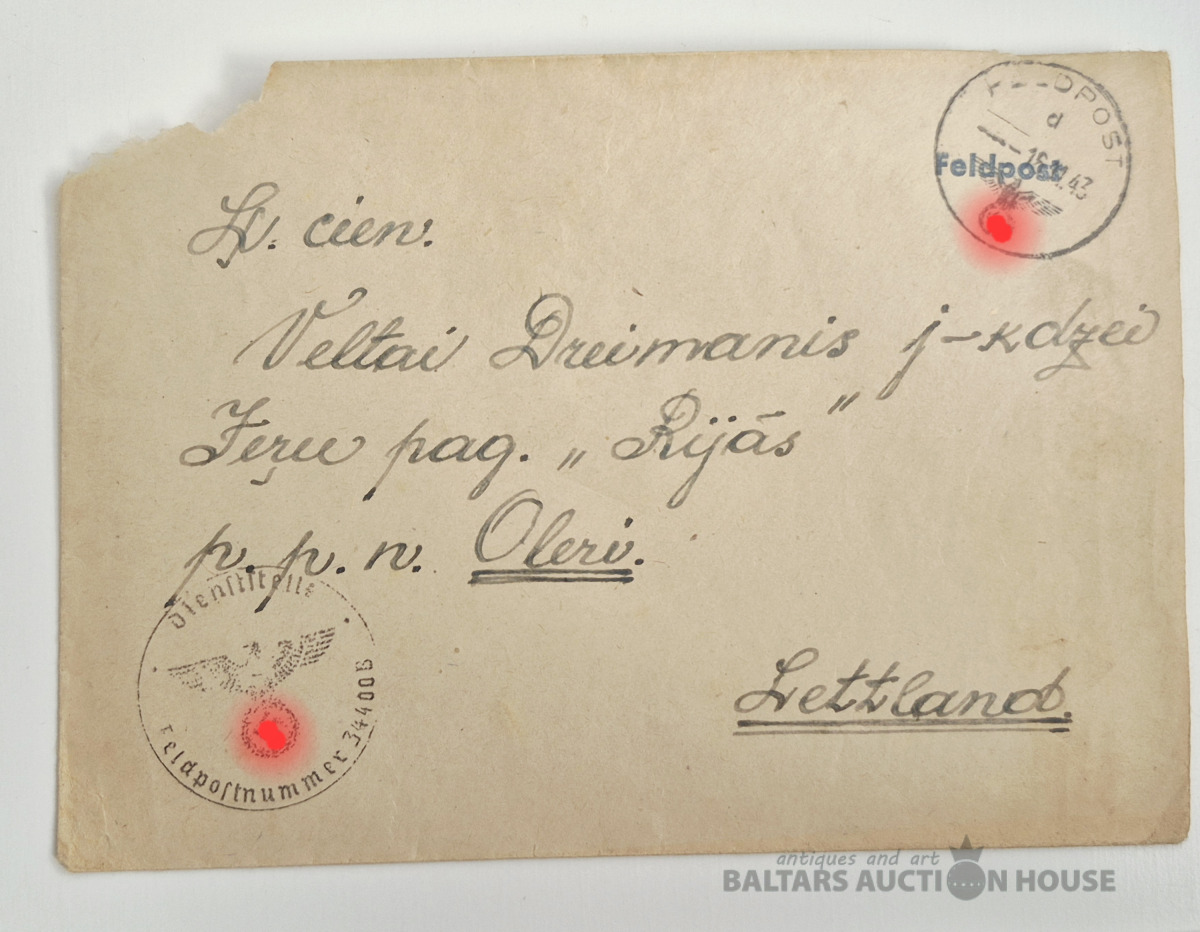 FELDPOST
d
Feldpost
Ļ. cien.
Veltai Dreimanis j-kdzei
Jeŗu pag. „Rijās"
p. p. n. Oleri.
Dienststelle
Feldpostnummer 34400B
Lettland.
antiques and art
BALTARS AUCTION HOUSE